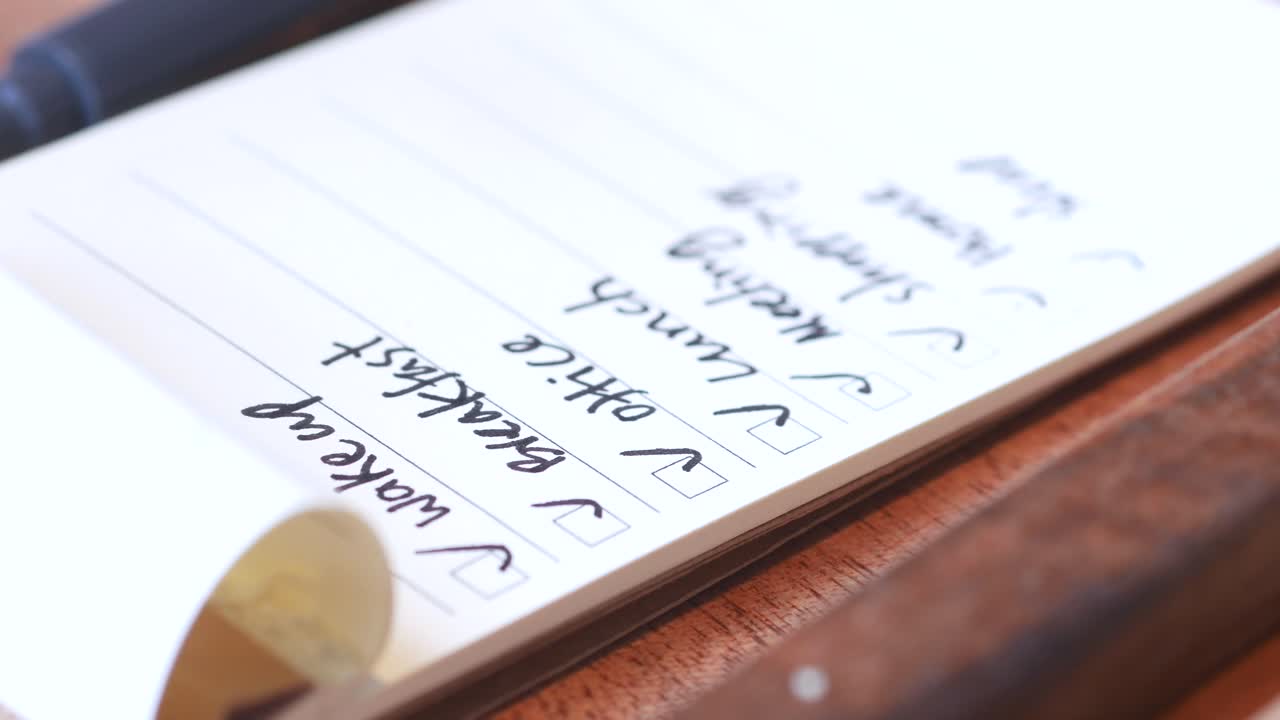 Wake up
Breakfast
Office
Lunch
Meeting
Shopping
Home